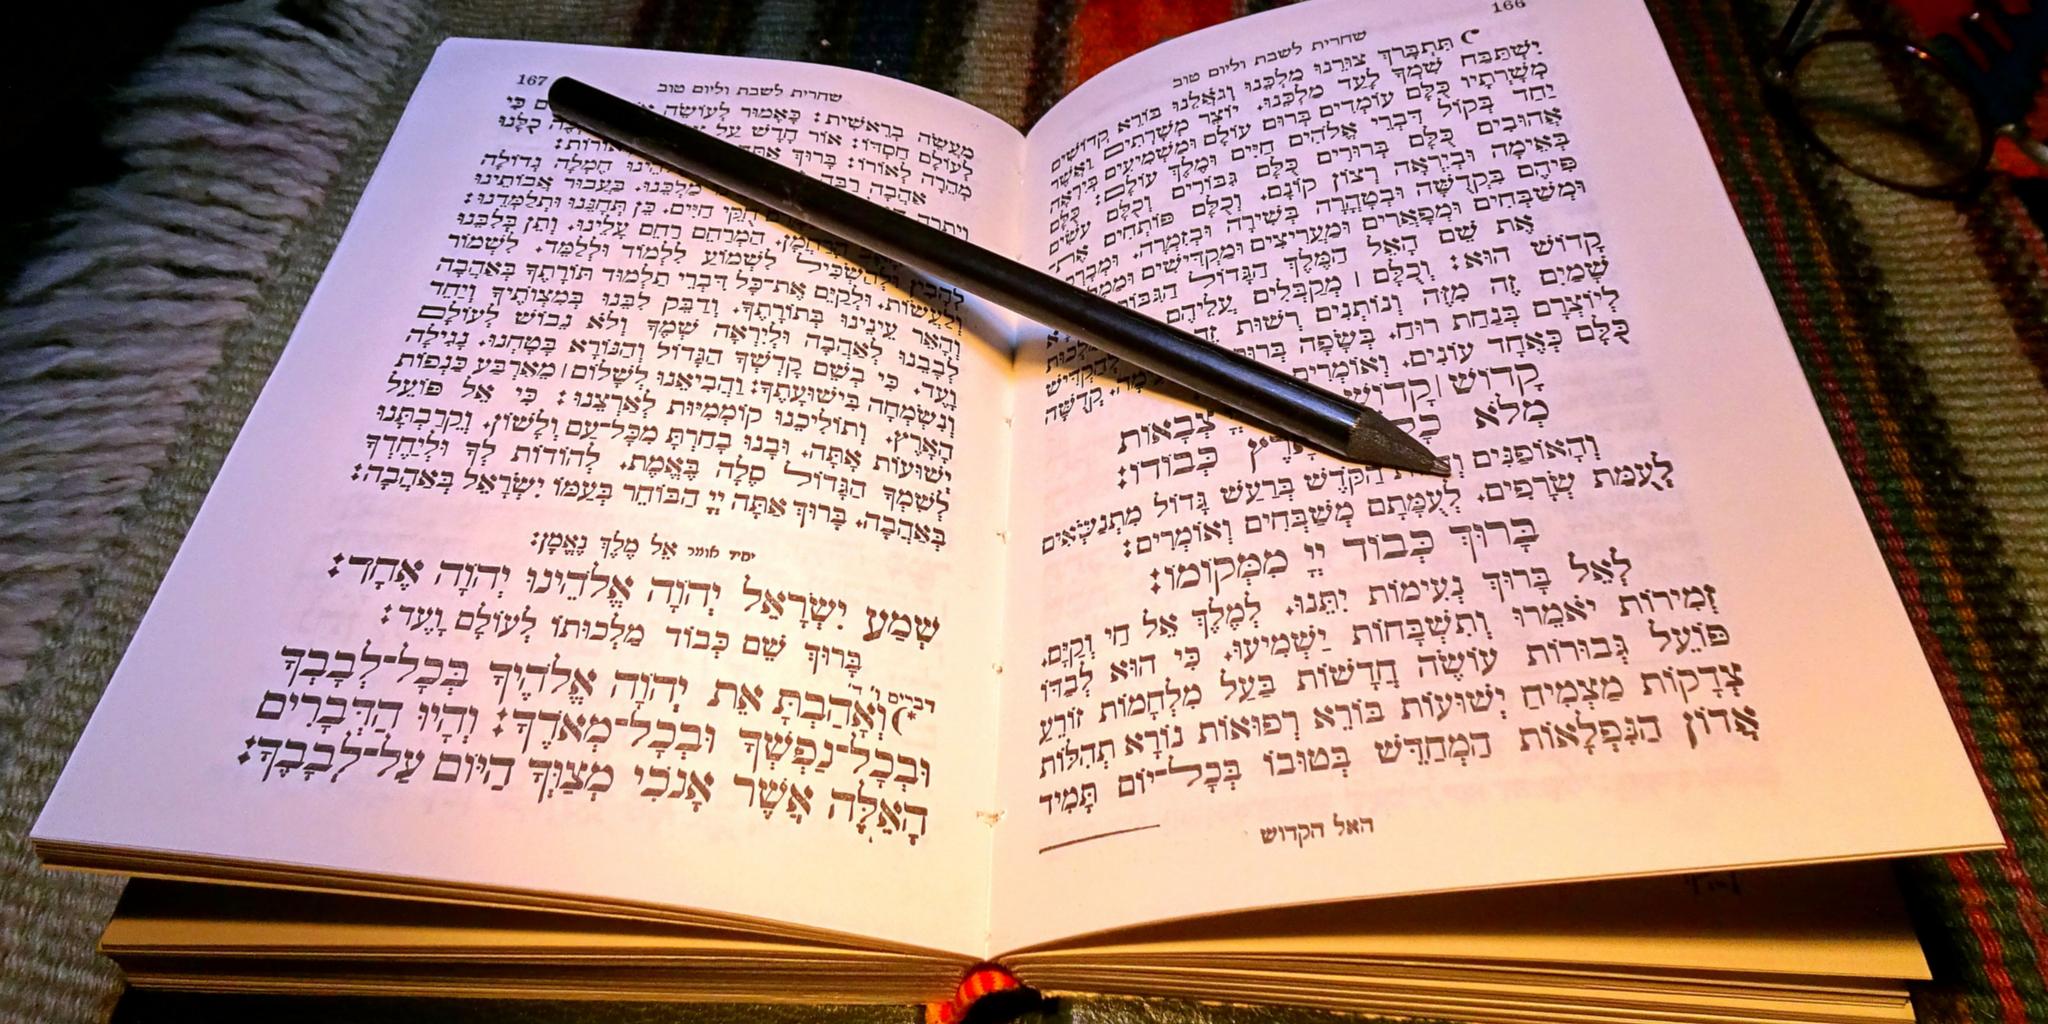 166
שחרית לשבת וליום טוב
תִּתְבָּרַךְ צוּרֵנוּ מַלְכֵּנוּ וְגֹאֲלֵנוּ בּוֹרֵא קְדוֹשִׁים
יִשְׁתַּבַּח שִׁמְךָ לָעַד מַלְכֵּנוּ. יוֹצֵר מְשָׁרְתִים וַאֲשֶׁר
מְשָׁרְתָיו כֻּלָּם עוֹמְדִים בְּרוּם עוֹלָם וּמַשְׁמִיעִים בְּיִרְאָה
יַחַד בְּקוֹל דִּבְרֵי אֱלֹהִים חַיִּים וּמֶלֶךְ עוֹלָם: כֻּלָּם
אֲהוּבִים כֻּלָּם בְּרוּרִים כֻּלָּם גִּבּוֹרִים וְכֻלָּם עֹשִׂים
בְּאֵימָה וּבְיִרְאָה רְצוֹן קוֹנָם. וְכֻלָּם פּוֹתְחִים אֶת־
פִּיהֶם בִּקְדֻשָּׁה וּבְטָהֳרָה בְּשִׁירָה וּבְזִמְרָה. וּמְבָרְכִים
וּמְשַׁבְּחִים וּמְפָאֲרִים וּמַעֲרִיצִים וּמַקְדִּישִׁים
אֶת שֵׁם הָאֵל הַמֶּלֶךְ הַגָּדוֹל
קָדוֹשׁ הוּא: וְכֻלָּם | מְקַבְּלִים עֲלֵיהֶם
שָׁמַיִם זֶה מִזֶּה וְנוֹתְנִים רְשׁוּת זֶה לְהַקְדִּישׁ
לְיוֹצְרָם בְּנַחַת רוּחַ. בְּשָׂפָה קְדֻשָּׁה
כֻּלָּם כְּאֶחָד עוֹנִים. וְאוֹמְרִים
קָדוֹשׁ | קָדוֹשׁ צְבָאוֹת
מְלֹא כְּבוֹדוֹ:
וְהָאוֹפַנִּים הַקֹּדֶשׁ בְּרַעַשׁ גָּדוֹל מִתְנַשְּׂאִים
לְעֻמַּת שְׂרָפִים. לְעֻמָּתָם מְשַׁבְּחִים וְאוֹמְרִים:
בָּרוּךְ כְּבוֹד יְיָ מִמְּקוֹמוֹ:
לָאֵל בָּרוּךְ נְעִימוֹת יִתֵּנוּ. לְמֶלֶךְ אֵל חַי וְקַיָּם.
זְמִירוֹת יֹאמֵרוּ וְתִשְׁבָּחוֹת יַשְׁמִיעוּ. כִּי הוּא לְבַדּוֹ
פּוֹעֵל גְּבוּרוֹת עוֹשֶׂה חֲדָשׁוֹת בַּעַל מִלְחָמוֹת זוֹרֵעַ
צְדָקוֹת מַצְמִיחַ יְשׁוּעוֹת בּוֹרֵא רְפוּאוֹת נוֹרָא תְהִלּוֹת
אֲדוֹן הַנִּפְלָאוֹת הַמְחַדֵּשׁ בְּטוּבוֹ בְּכָל־יוֹם תָּמִיד
האל הקדוש
167
שחרית לשבת וליום טוב
מַעֲשֵׂה בְרֵאשִׁית: כָּאָמוּר לְעוֹשֵׂה כִּי
לְעוֹלָם חַסְדּוֹ: אוֹר חָדָשׁ עַל כֻלָּנוּ
מְהֵרָה לְאוֹרוֹ: בָּרוּךְ אַתָּה
אַהֲבָה רַבָּה חֶמְלָה גְדוֹלָה
וִיתֵרָה מַלְכֵּנוּ. בַּעֲבוּר אֲבוֹתֵינוּ
חֻקֵּי חַיִּים. כֵּן תְּחָנֵּנוּ וּתְלַמְּדֵנוּ:
הַמְרַחֵם רַחֵם עָלֵינוּ. וְתֵן בְּלִבֵּנוּ
לְהָבִין וּלְהַשְׂכִּיל לִשְׁמוֹעַ לִלְמוֹד וּלְלַמֵּד. לִשְׁמוֹר
וְלַעֲשׂוֹת. וּלְקַיֵּם אֶת־כָּל דִּבְרֵי תַלְמוּד תּוֹרָתֶךָ בְּאַהֲבָה
וְהָאֵר עֵינֵינוּ בְּתוֹרָתֶךָ. וְדַבֵּק לִבֵּנוּ בְּמִצְוֹתֶיךָ וְיַחֵד
לְבָבֵנוּ לְאַהֲבָה וּלְיִרְאָה שְׁמֶךָ וְלֹא נֵבוֹשׁ לְעוֹלָם
וָעֶד. כִּי בְשֵׁם קָדְשְׁךָ הַגָּדוֹל וְהַנּוֹרָא בָּטָחְנוּ. נָגִילָה
וְנִשְׂמְחָה בִּישׁוּעָתֶךָ: וַהֲבִיאֵנוּ לְשָׁלוֹם | מֵאַרְבַּע כַּנְפוֹת
הָאָרֶץ. וְתוֹלִיכֵנוּ קוֹמְמִיּוּת לְאַרְצֵנוּ: כִּי אֵל פּוֹעֵל
יְשׁוּעוֹת אָתָּה. וּבָנוּ בָחַרְתָּ מִכָּל־עַם וְלָשׁוֹן. וְקֵרַבְתָּנוּ
לְשִׁמְךָ הַגָּדוֹל סֶלָה בֶּאֱמֶת. לְהוֹדוֹת לְךָ וּלְיַחֶדְךָ
בְּאַהֲבָה. בָּרוּךְ אַתָּה יְיָ הַבּוֹחֵר בְּעַמּוֹ יִשְׂרָאֵל בְּאַהֲבָה:
יחיד אומר אֵל מֶלֶךְ נֶאֱמָן:
שְׁמַע יִשְׂרָאֵל יְהוָה אֱלֹהֵינוּ יְהוָה אֶחָד:
בָּרוּךְ שֵׁם כְּבוֹד מַלְכוּתוֹ לְעוֹלָם וָעֶד:
דברים ו׳ ה׳
וְאָהַבְתָּ אֵת יְהוָה אֱלֹהֶיךָ בְּכָל־לְבָבְךָ
וּבְכָל־נַפְשְׁךָ וּבְכָל־מְאֹדֶךָ: וְהָיוּ הַדְּבָרִים
הָאֵלֶּה אֲשֶׁר אָנֹכִי מְצַוְּךָ הַיּוֹם עַל־לְבָבֶךָ: